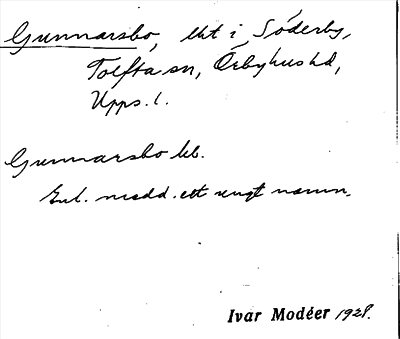 Gunnarsbo, lht i Söderby,
Tolfta sn, Örbyhus hd,
Upps. l.
Gunnarsbo lht.
Enl. medd. ett ungt namn.
Ivar Modéer 1928.